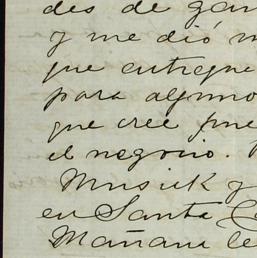 des de gan
y me dió m
que entregue
para alguno
que cree pue
el negocio.
Musick y
en Santa C
Mañana le